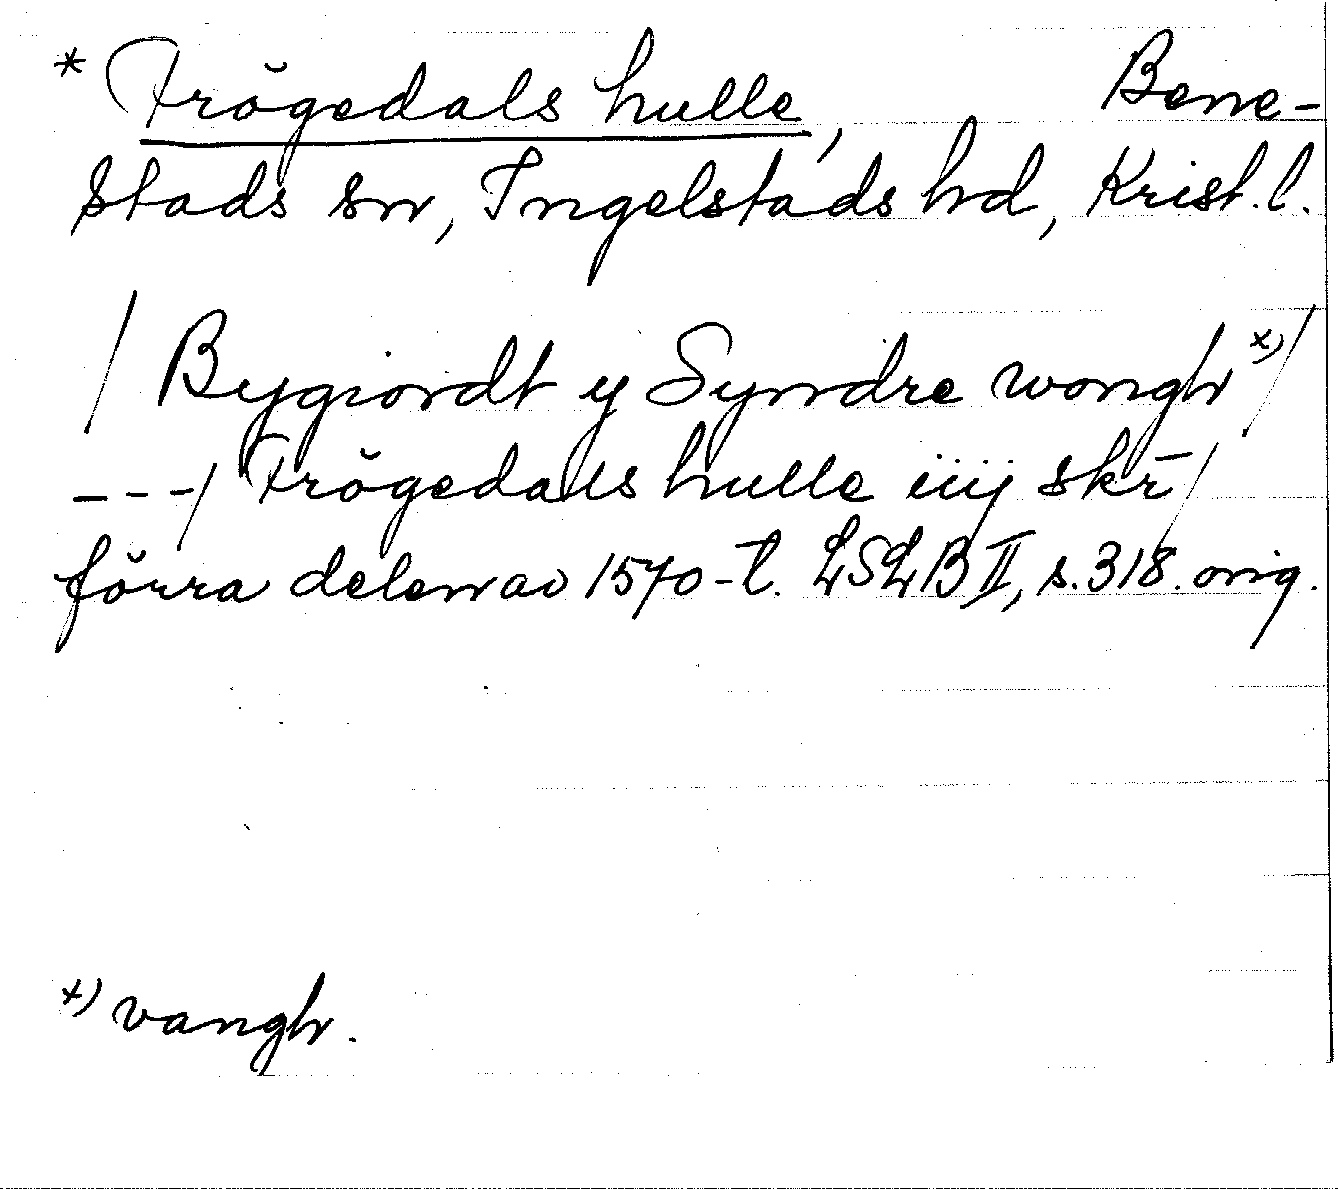 * Frögedals hulle, Bene-
stads sn, Ingelstads hd, Krist. l.
/ Bygiordt y Syndre wongh *) /
--- / Frögedals hulle iiij skr̄ /
förra delen av 1570-t. LSLB II, s. 318. orig.
*) vangh.